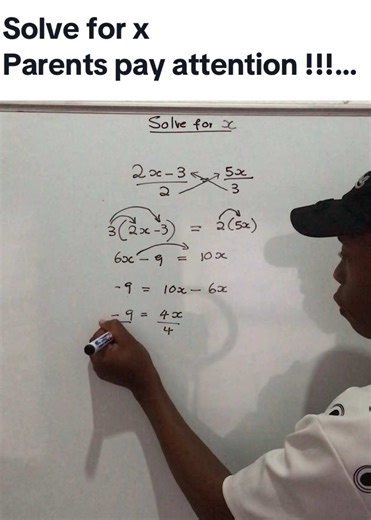 Solve for x
Parents pay attention !!!...
Solve for x
2x - 3 5x
2 3
3(2x - 3) = 2(5x)
6x - 9 = 10x
-9 = 10x - 6x
-9 = 4x
4